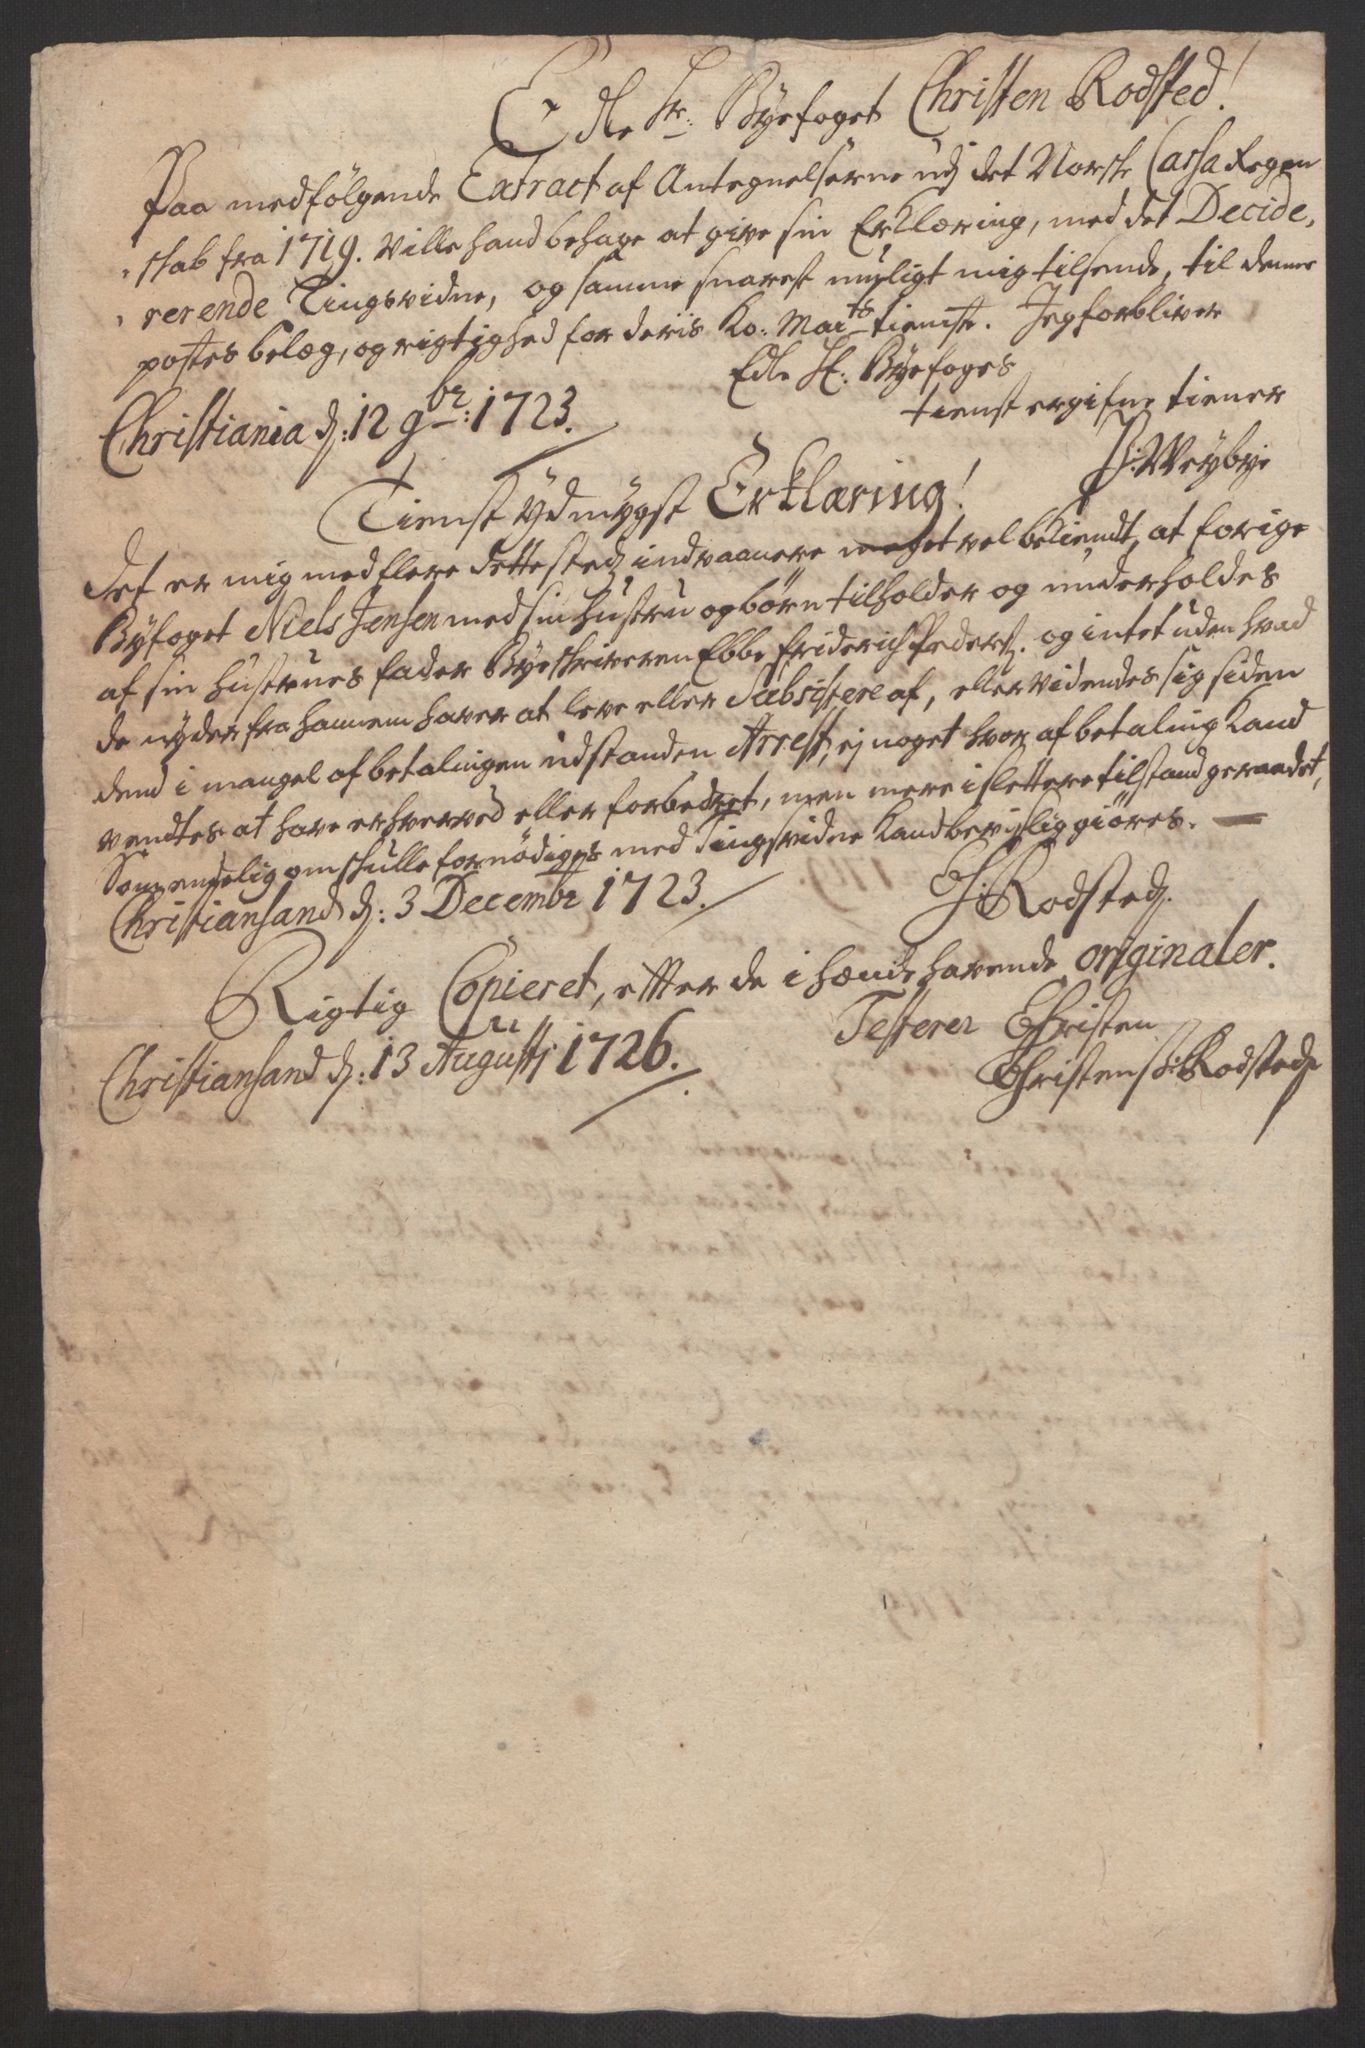 Edle Hr: Byefoget Christen Rodsted!
Paa medfölgende Extract af Antegnelserne udj det Norske Cassa Regen
skab fra 1719. Ville hand behage at give sin Erklæring, med det Decide,
rerende Tingsvidne, og samme snarest mueligt mig tilsende, til denne
postes belæg, og rigtighed for deris Ko: Maits tieniste. Jeg forbliver
Edle Hr: Byefogets
tienst ergifne tiener
Christiania d: 12 9br: 1723.
Weybye
Tienst ydmygst Erklaring!
Det er mig med flere dette steds indvaanere meget vel bekiendt, at forige
Byfoget Niels Jensen med sin hustru og børn tilholder og underholdes
af sin hustrues fader Byeskriveren Ebbe Friderich Peders. og intet uden hvad
de nyder fra hannem haver at leve eller Subsistere af, eller videndes sig siden
dend i mangel af betalingen udstanden Arrest, ej noget hvor af betaling kand
vendtes at have erhverved eller forbedret, men mere i slettere tilstand geraadet,
Som endelig om skulle fornödiges med Tingsvidne kand bevislig giöres.
Christiansand d: 3 Decembr 1723.
C: Rodsted.
Rigtig Copieret, efter de i hænde havende originaler.
Testerer Christen
Christiansand d: 13 Augustj 1726.
Christens: Rodsted